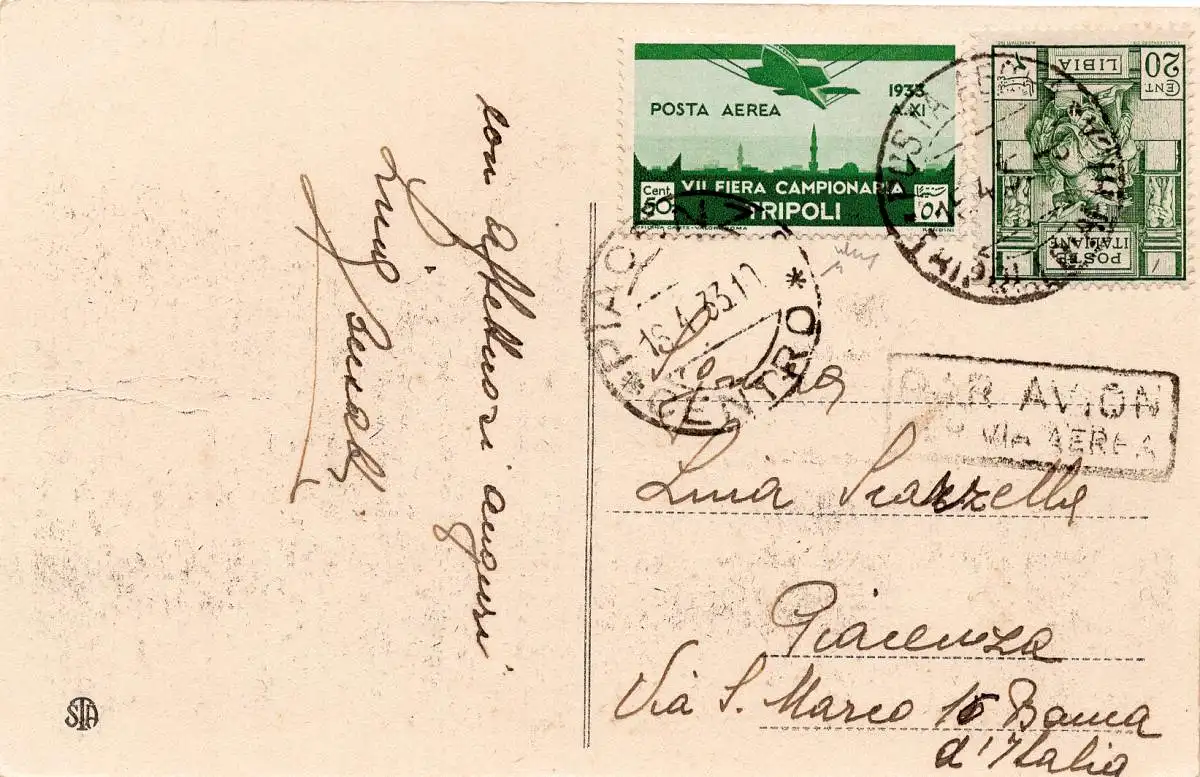 con affettuosi auguri
Luigi
POSTA AEREA
1933
A. XI
VII FIERA CAMPIONARIA
TRIPOLI
Cent.
50
٥٠
20
CENT
LIBIA
POSTE
ITALIANE
POSTA AEREA
PIACENZA
16.4.33.11
* CENTRO *
PAR AVION
VIA AEREA
Signora
Lina Scarzella
Piacenza
Via S. Marco 16 Banca
d'Italia
STA